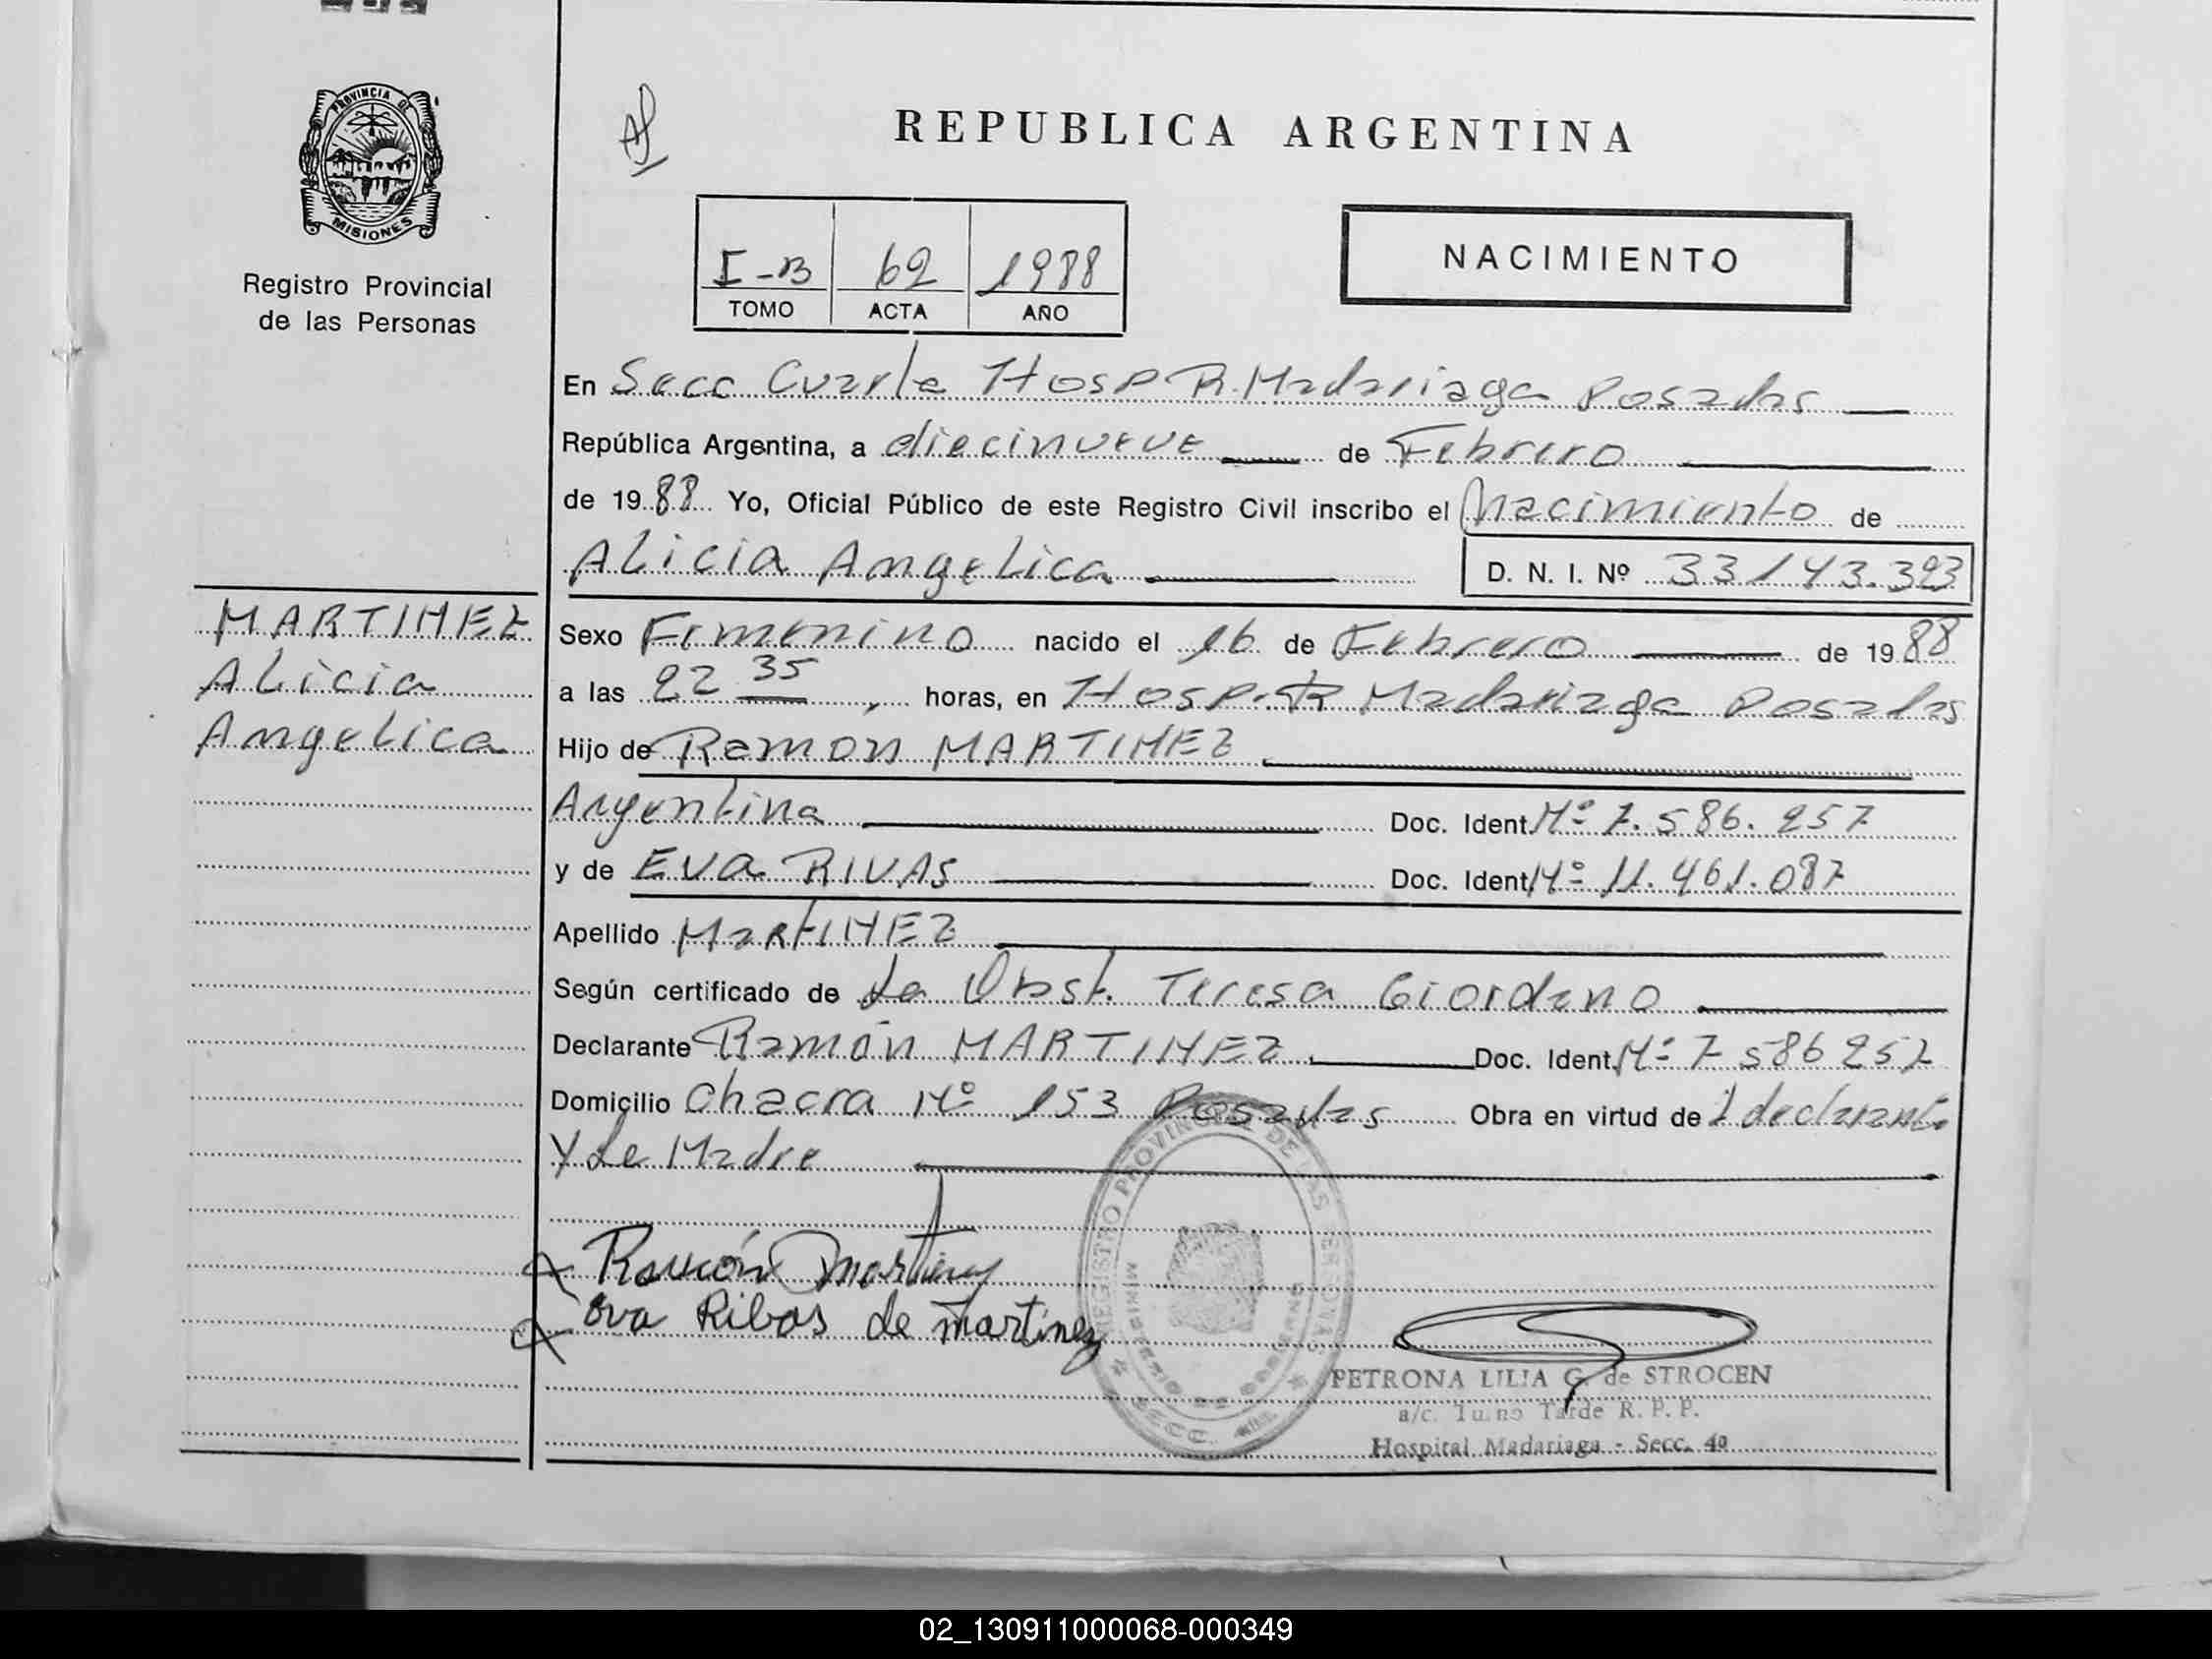 PROVINCIA DE
MISIONES
Registro Provincial
de las Personas
REPUBLICA ARGENTINA
I-B 62 1988
TOMO ACTA AÑO
NACIMIENTO
En Secc Cuarta Hosp R. Madariaga Posadas
República Argentina, a diecinueve de Febrero
de 1988 Yo, Oficial Público de este Registro Civil inscribo el Nacimiento de
Alicia Angelica D. N. I. Nº 33143.393
MARTINEZ
Alicia
Angelica
Sexo Femenino nacido el 16 de Febrero de 1988
a las 22 35, horas, en Hosp. R Madariaga Posadas
Hijo de Ramon MARTINEZ
Argentina Doc. Ident. Nº 7.586.257
y de Eva RIVAS Doc. Ident Nº 11.461.087
Apellido MARTINEZ
Según certificado de La Obst. Teresa Giordano
Declarante Ramón MARTINEZ. Doc. Ident. Nº 7586257
Domicilio Chacra Nº 153 Posadas Obra en virtud de l declarante
Y La Madre
Ramón Martinez
Eva Ribas de martinez
REGISTRO PROVINCIAL DE LAS PERSONAS
PETRONA LILIA G. de STROCEN
a/c. Turno Tarde R. P. P.
Hospital Madariaga - Secc. 4ª
02_130911000068-000349